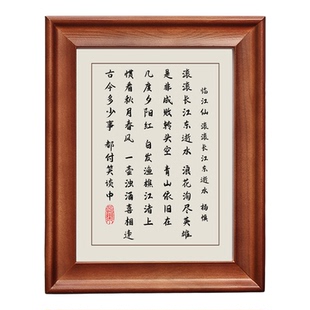 临江仙 滚滚长江东逝水 杨慎
滚滚长江东逝水 浪花淘尽英雄
是非成败转头空 青山依旧在
几度夕阳红 白发渔樵江渚上
惯看秋月春风 一壶浊酒喜相逢
古今多少事 都付笑谈中